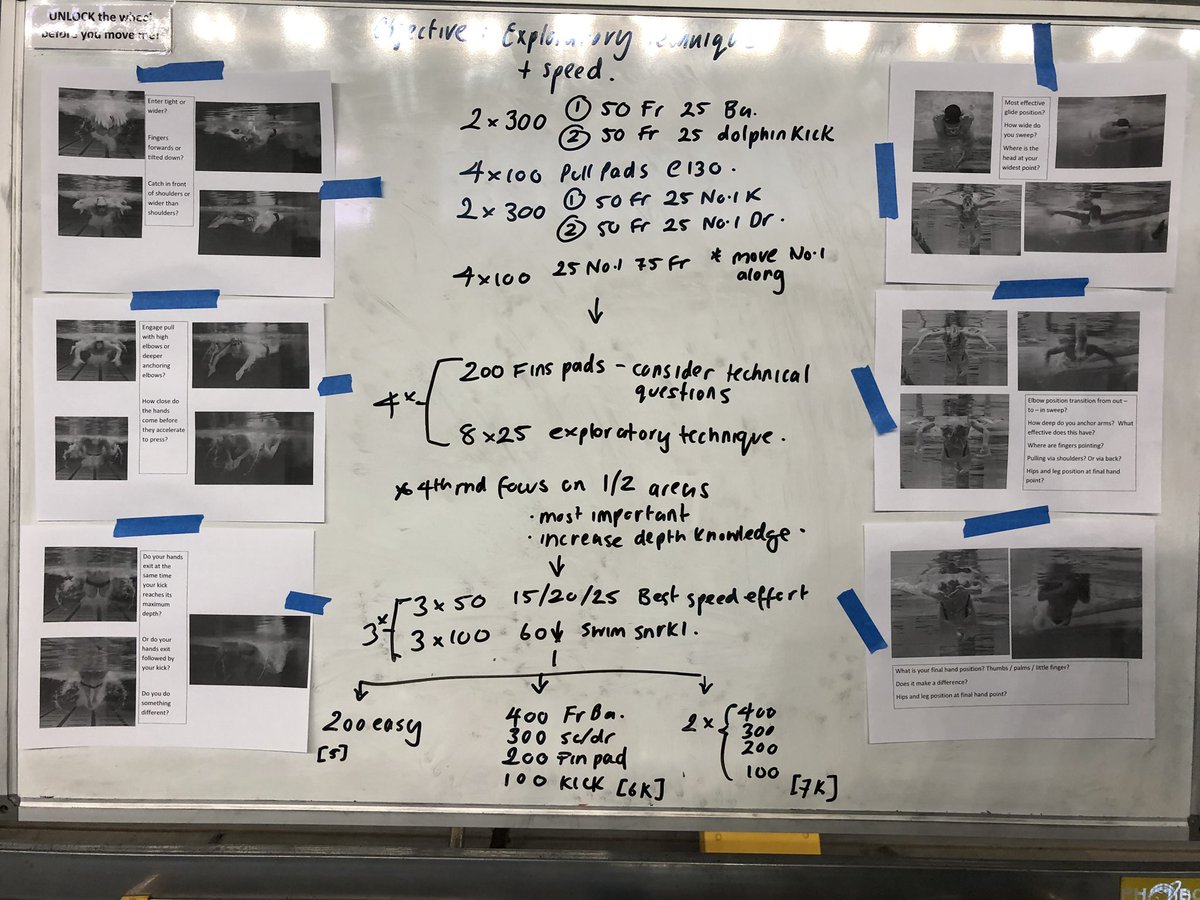 UNLOCK the wheel
before you move me!
Objective : Exploratory Technique
+ speed.
2 x 300 ① 50 Fr 25 Ba.
② 50 Fr 25 dolphin Kick
4 x 100 Pull Pads @ 130.
2 x 300 ① 50 Fr 25 No.1 K
② 50 Fr 25 No.1 Dr.
4 x 100 25 No.1 75 Fr * move No.1
along
↓
4 x 200 Fins pads - consider technical
questions
8 x 25 exploratory technique.
* 4th rnd focus on 1/2 areas
· most important
· increase depth knowledge.
↓
3 x 3 x 50 15/20/25 Best speed effort
3 x 100 60↓ swim snrkl.
200 easy
[5]
400 Fr Ba.
300 sc/dr
200 Fin pad
100 KICK [6K]
2 x 400
300
200
100 [7K]
Enter tight or
wider?
Fingers
forwards or
tilted down?
Catch in front
of shoulders or
wider than
shoulders?
Engage pull
with high
elbows or
deeper
anchoring
elbows?
How close do
the hands
come before
they accelerate
to press?
Do your hands
exit at the
same time
your kick
reaches its
maximum
depth?
Or do your
hands exit
followed by
your kick?
Do you do
something
different?
Most effective
glide position?
How wide do
you sweep?
Where is the
head at your
widest point?
Elbow position transition from out –
to – in sweep?
How deep do you anchor arms? What
effective does this have?
Where are fingers pointing?
Pulling via shoulders? Or via back?
Hips and leg position at final hand
point?
What is your final hand position? Thumbs / palms / little finger?
Does it make a difference?
Hips and leg position at final hand point?